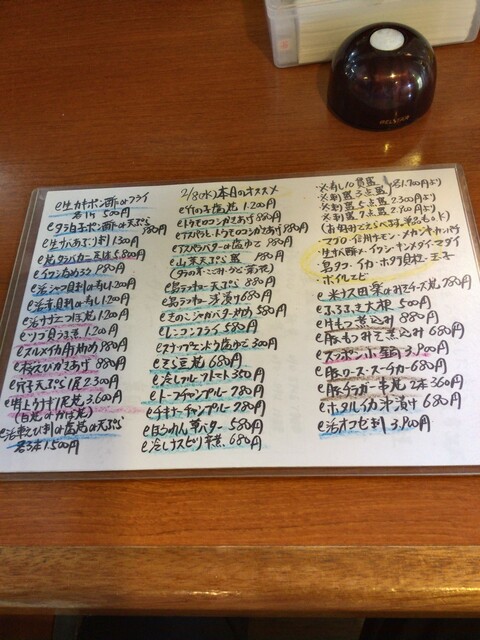 e生カキポン酢orフライ
各1ケ 500円
eタラ白子ポン酢or天ぷら
780円
e生サバあぶり刺 1.300円
5.800円
eイワシなめろう 780円
1.200円
1.200円
e活サザエつぼ焼 1.200円
eツブ貝うま煮 1.200円
eスルメイカ肉炒め 880円
e桜えびかきあげ 880円
e穴子天ぷら1尾 2.300円
3.600円
(白焼orかば焼)
e活車えび刺or塩焼or天ぷら
各3本 1.500円
2/8(水)本日のオススメ
e竹の子塩焼 1.200円
eトウモロコシかきあげ 880円
eアスパラとトウモロコシかきあげ 880円
eアスパラバターor塩ゆで 780円
e山菜天ぷら盛 780円
(タラの芽・こごみ・ふきのとう)
e島ラッキョ天ぷら 880円
e島ラッキョ浅漬け 680円
eきのこジャガバター炒め 580円
eレンコンフライ 580円
eスナップエンドウ塩ゆで 300円
eそら豆焼 680円
e冷しフルーツトマト 350円
eトーフチャンプルー 780円
eチキナーチャンプルー 780円
eほうれん草バター 580円
e冷しナスピリ辛煮 680円
※寿し10貫盛 1.700円より
※刺盛3点盛
※刺盛5点盛 2.300円より
※刺盛7点盛 2.790円より
(お好みでえらべます。単品もOK)
・マグロ・信州サーモン・メカジキ・カンパチ
・生サバ酢〆・イワシ・キンメダイ・マダイ
・島タコ・イカ・ホタテ貝柱・玉子
・ボイルエビ
e米ナス田楽orみそチーズ焼 780円
eふろふき大根 500円
e牛もつ煮込み 880円
e豚もつみそ煮込み 680円
eスッポン小鍋 3.900円
e豚ロース・ステーキ 680円
e豚チラガー串焼2本 360円
eホタルイカ沖漬け 680円
e活オコゼ刺 3.900円